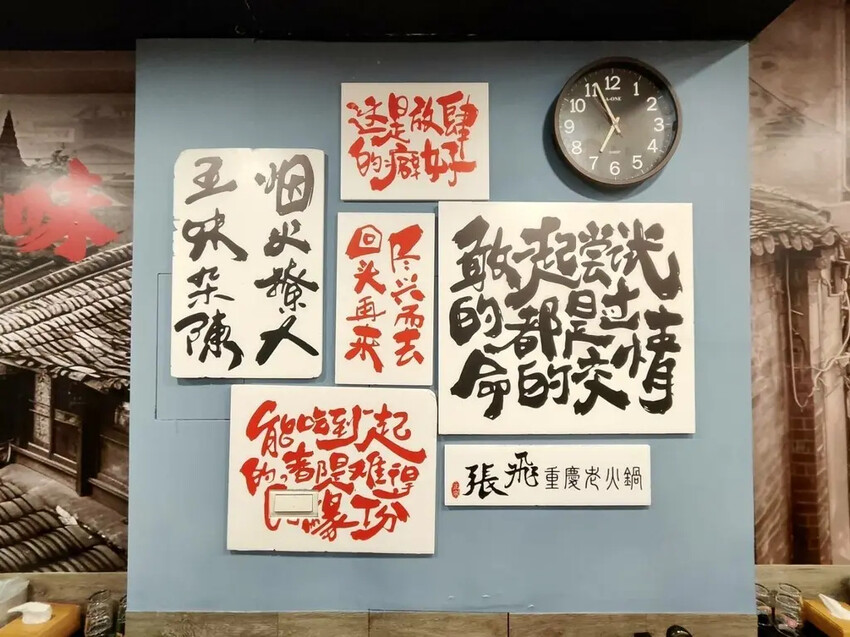 味
这是放肆
的癖好
烟火撩人
五味杂陳
尽兴而去
回头再来
敢一起尝试
的都是过
命的交情
能吃到一起
的都是难得
缘份
張飛 重慶老火鍋
A-ONE
12
1
2
3
4
5
6
7
8
9
10
11